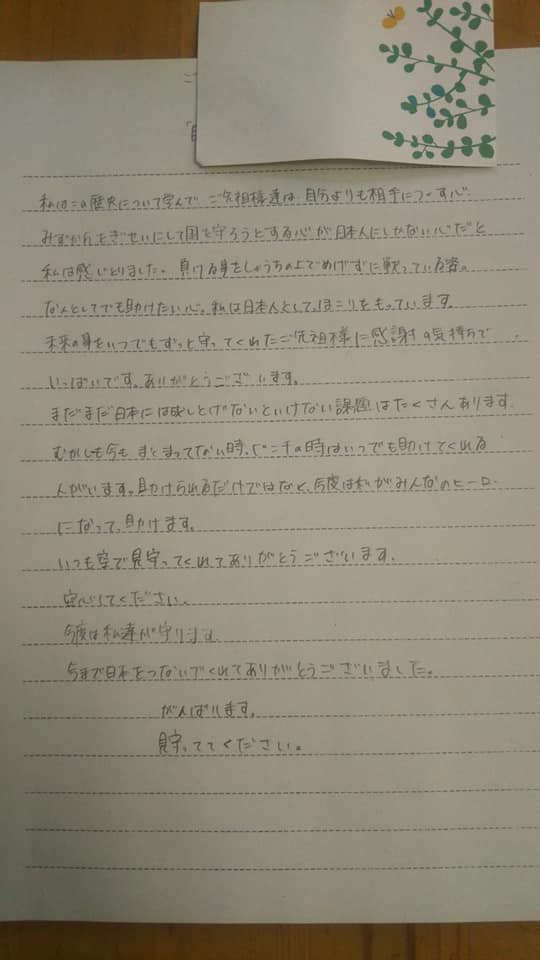 私はこの歴史について学んで、ご先祖様達は、自分よりも相手につーす心
みずからをぎせいにして国を守ろうとする心が日本人にしかない心だと
私は感じとりました。負ける身をしょうちの上でめげずに戦っている姿。
なんとしてでも助けたい心。私は日本人として、ほこりをもっています。
未来の身をいつでもずっと守ってくれたご先祖様に感謝の気持ちで
いっぱいです。ありがとうございます。
まだまだ日本には成しとげないといけない課題はたくさんあります。
むかしも今も、まとまってない時、ピンチの時はいつでも助けてくれる
人がいます。助けられるだけではなく、今度は私がみんなのヒーロー
になって、助けます。
いつも空で見守ってくれてありがとうございます。
安心してください。
今度は私達が守ります
今まで日本をつないでくれてありがとうございました。
がんばります。
見守っててください。